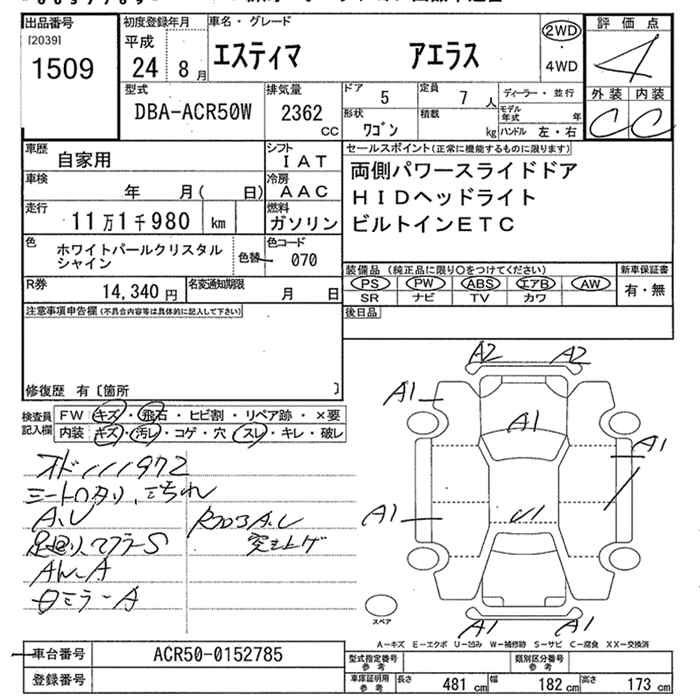 出品番号
[2039]
1509
初度登録年月
平成
24 8月
車名・グレード
エスティマ アエラス
2WD
・
4WD
評価点
4
外装 内装
C C
型式
DBA-ACR50W
排気量
2362
CC
ドア 5
定員 7人
形状
ワゴン
積載
kg
ディーラー・並行
モデル
年式 年
ハンドル 左・右
車歴
自家用
シフト
IAT
車検
年 月( 日)
冷房
AAC
走行
11万1千980 km
燃料
ガソリン
色
ホワイトパールクリスタル
シャイン
色替
色コード
070
R券
14,340円
名変通知期限
月 日
セールスポイント(正常に機能するものに限ります)
両側パワースライドドア
HIDヘッドライト
ビルトインETC
装備品 (純正品に限り○をつけてください)
PS PW ABS エアB AW
SR ナビ TV カワ
新車保証書
有・無
後日品
注意事項申告欄(不具合内容等は具体的に記入して下さい)
修復歴 有〔箇所 〕
検査員
記入欄
FW キズ・飛石・ヒビ割・リペア跡・×要
内装 キズ・汚レ・コゲ・穴・スレ・キレ・破レ
オド111972
A.U
突き上げ
ロミラーA
A2 A2
A1
A1
A1
A1
U1
A1 A1
スペア
A-キズ E-エクボ U-凹み W-補修跡 S-サビ C-腐食 XX-交換済
車台番号
ACR50-0152785
登録番号
型式指定番号
参考
類別区分番号
参考
車庫証明用
参考
長さ 481cm
幅 182cm
高さ 173cm